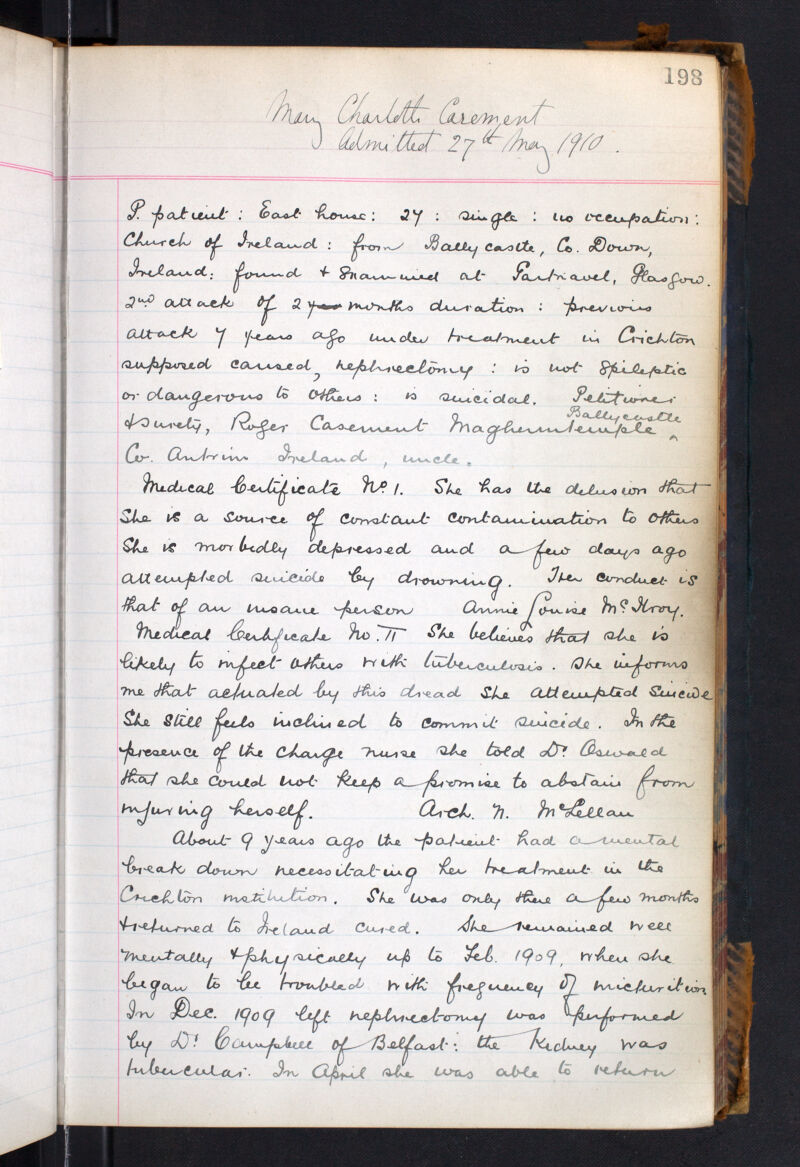 198
Mary Charlotte Casement
Admitted 27th May 1910.
P. patient : East house : 27 : single : no occupation :
Church of Ireland : from Ballycastle, Co. Down,
Ireland : found & examined at Gartnavel, Glasgow.
2nd attack of 2 months duration : previous
attack 7 years ago under treatment in Crichton
supposed caused, nephrectomy : is not epileptic
or dangerous to others : is suicidal. Petitioner
& surety, Roger Casement Magherintemple ^ Ballycastle
Co. Antrim Ireland, uncle.
Medical Certificate No. 1. She has the delusion that
She is a source of constant contamination to others
She is morbidly depressed and a few days ago
attempted suicide by drowning. Her conduct is
that of an insane person Annie Louise McIlroy.
Medical Certificate No. II She believes that she is
likely to infect others with tuberculosis. She informs
me that actuated by this dread she attempted suicide
She still feels inclined to commit suicide. In the
presence of the charge nurse she told Dr Oswald
that she could not keep a promise to abstain from
injuring herself. Arch. N. McLellan
About 9 years ago the patient had a mental
break down necessitating her treatment in the
Crichton institution. She was only there a few months
& returned to Ireland cured. She remained well
mentally & physically up to Feb. 1909, when she
began to be troubled with frequency of micturition
In Dec. 1909 left nephrectomy was performed
by Dr Campbell of Belfast : the kidney was
tubercular. In April she was able to return